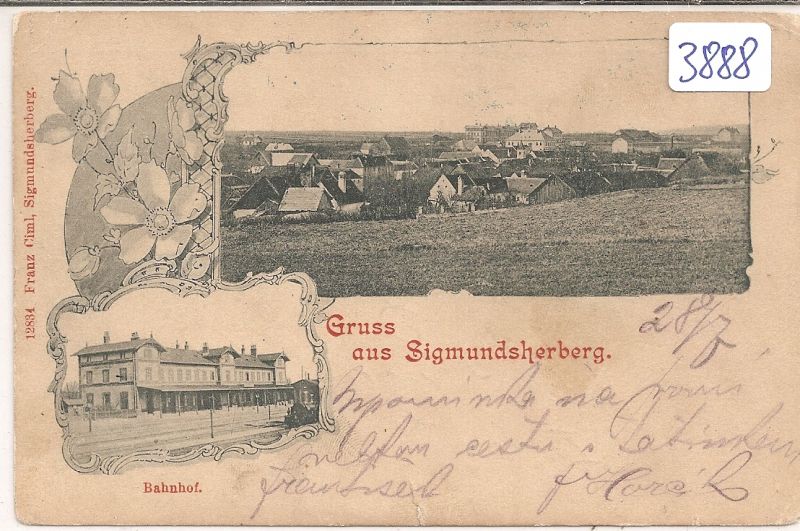 3888
12834 Franz Ciml, Sigmundsherberg.
Gruss
aus Sigmundsherberg.
28/7
Vzpomínka na
cestu s
František
Bahnhof.